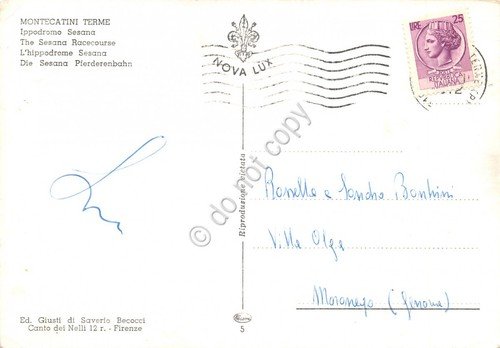 MONTECATINI TERME
Ippodromo Sesana
The Sesana Racecourse
L'hippodrome Sesana
Die Sesana Pferderenbahn
NOVA LUX
LIRE 25
REPUBBLICA
ITALIANA
do not copy
Riproduzione vietata
Rossella e Sandra
Villa Olga
Moranego (Genova)
Ed. Giusti di Saverio Becocci
Canto dei Nelli 12 r. - Firenze
5